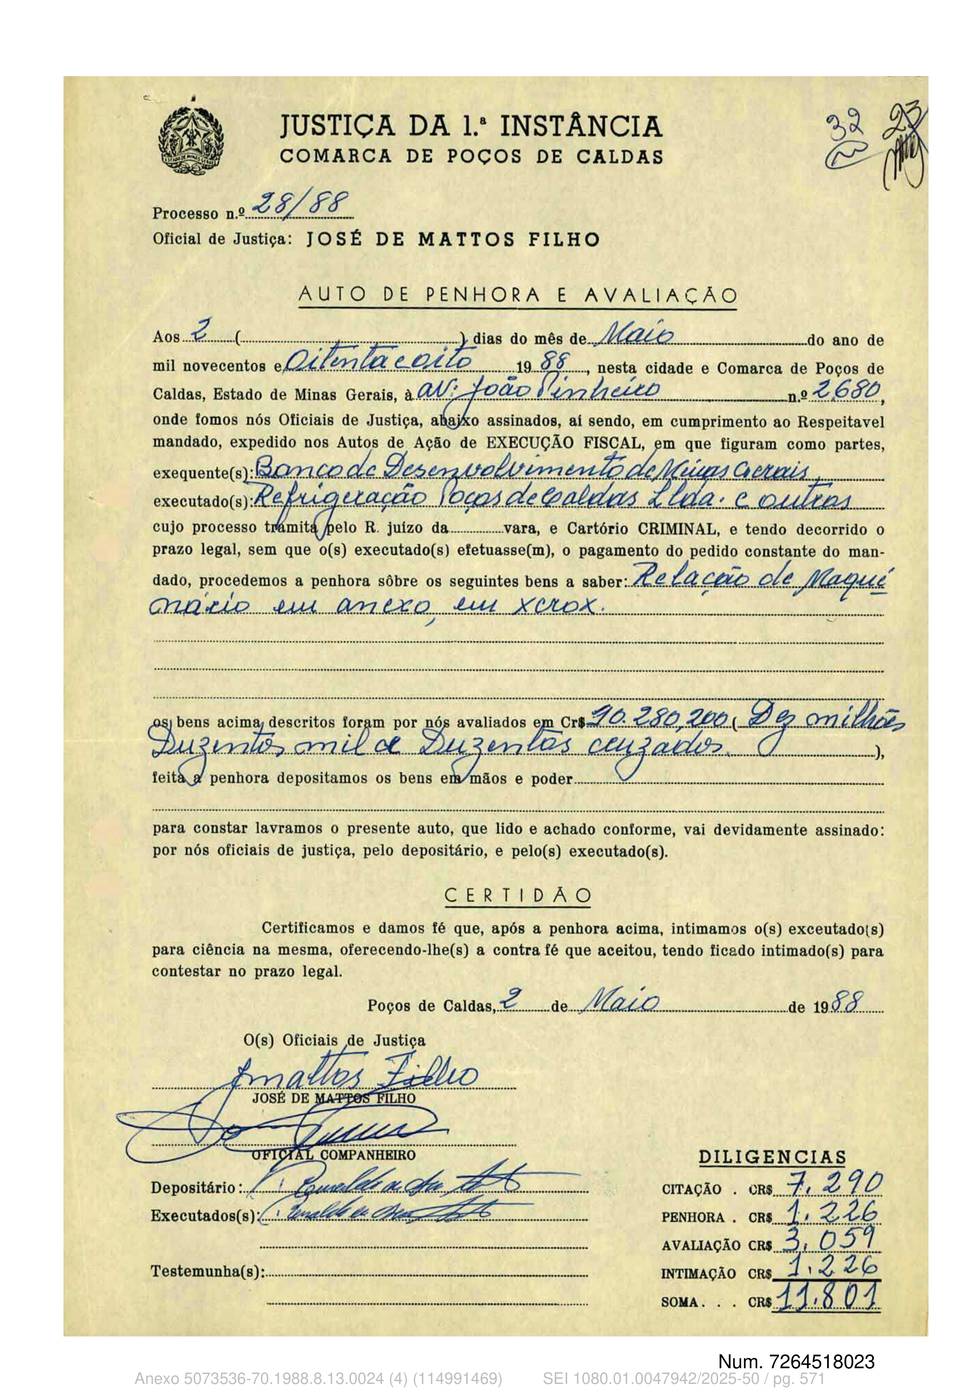 32 23
JUSTIÇA DA 1.ª INSTÂNCIA
COMARCA DE POÇOS DE CALDAS
Processo n.º 28/88
Oficial de Justiça: JOSÉ DE MATTOS FILHO
AUTO DE PENHORA E AVALIAÇÃO
Aos 2 ( ) dias do mês de Maio do ano de
mil novecentos e Oitenta e oito 19 88, nesta cidade e Comarca de Poços de
Caldas, Estado de Minas Gerais, à av: João Pinheiro n.º 2,680,
onde fomos nós Oficiais de Justiça, abaixo assinados, aí sendo, em cumprimento ao Respeitavel
mandado, expedido nos Autos de Ação de EXECUÇÃO FISCAL, em que figuram como partes,
exequente(s): Banco de Desenvolvimento de Minas Gerais
executado(s): Refrigeração Poços de Caldas Ltda. e outros
cujo processo tramita pelo R. juízo da vara, e Cartório CRIMINAL, e tendo decorrido o
prazo legal, sem que o(s) executado(s) efetuasse(m), o pagamento do pedido constante do man-
dado, procedemos a penhora sôbre os seguintes bens a saber: Relação de Maqui
nário em anexo, em xerox.
os bens acima descritos foram por nós avaliados em Cr$ 10.280,200 ( Dez milhões
Duzentos, mil e Duzentos cruzados. ),
feita a penhora depositamos os bens em mãos e poder
para constar lavramos o presente auto, que lido e achado conforme, vai devidamente assinado:
por nós oficiais de justiça, pelo depositário, e pelo(s) executado(s).
CERTIDÃO
Certificamos e damos fé que, após a penhora acima, intimamos o(s) exceutado(s)
para ciência na mesma, oferecendo-lhe(s) a contra fé que aceitou, tendo ficado intimado(s) para
contestar no prazo legal.
Poços de Caldas, 2 de Maio de 1988
O(s) Oficiais de Justiça
Jmattos Filho
JOSÉ DE MATTOS FILHO
OFICIAL COMPANHEIRO
DILIGENCIAS
Depositário:
CITAÇÃO . CR$ 7,290
Executados(s):
PENHORA . CR$ 1.226
AVALIAÇÃO CR$ 3,059
Testemunha(s):
INTIMAÇÃO CR$ 1.226
SOMA. . . CR$ 11.801
Num. 7264518023
Anexo 5073536-70.1988.8.13.0024 (4) (114991469) SEI 1080.01.0047942/2025-50 / pg. 571